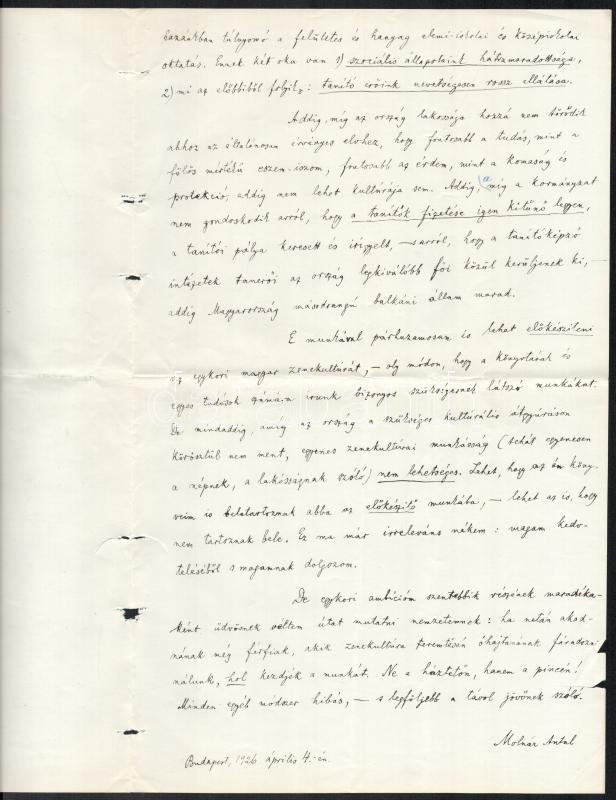 hazánkban túlnyomó a felületes és hanyag elemi-iskolai és középiskolai
oktatás. Ennek két oka van 1) szociális állapotaink hátramaradottsága,
2) mi az előbbiből folyik: tanító erőink nevetségesen rossz ellátása.
Addig, míg az ország lakossága hozzá nem törődik
ahhoz az általánosan érvényes elvhez, hogy fontosabb a tudás, mint a
fölös mértékű eszem-iszom, fontosabb az érdem, mint a komaság és
protekció, addig nem lehet kultúrája sem. Addig, a míg a kormányzat
nem gondoskodik arról, hogy a tanítók fizetése igen kitűnő legyen,
a tanítói pálya keresett és irigyelt, – s arról, hogy a tanítóképző
intézetek tanerői az ország legkiválóbb főí közül kerüljenek ki, –
addig Magyarország másodrangú balkáni állam marad.
E munkával párhuzamosan is lehet előkészíteni
az egykori magyar zenekultúrát, – oly módon, hogy a könyvtárak és
egyes tudósok számára írunk bizonyos szükségesnek látszó munkákat.
De mindaddig, amíg az ország a szükséges kulturális átgyúráson
körösztül nem ment, egyenes zenekultúrai munkásság (tehát egyenesen
a népnek, a lakósságnak szóló) nem lehetséges. Lehet, hogy az én köny-
veim is beletartoznak abba az előkészítő munkába, – lehet az is, hogy
nem tartoznak bele. Ez ma már irreleváns nékem: magam kedv-
teléséből s magamnak dolgozom.
De egykori ambícióm szentebbik részének maradéka-
ként üdvösnek vélten útat mutatni nemzetemnek: ha netán akad-
nának még férfiak, akik zenekultúra teremtésén óhajtanának fáradozni
nálunk, hol kezdjék a munkát. Ne a háztetőn, hanem a pincén!
Minden egyéb módszer hibás, – s legföljebb a távol jövőnek szóló.
Molnár Antal
Budapest, 1926 április 4.-én.